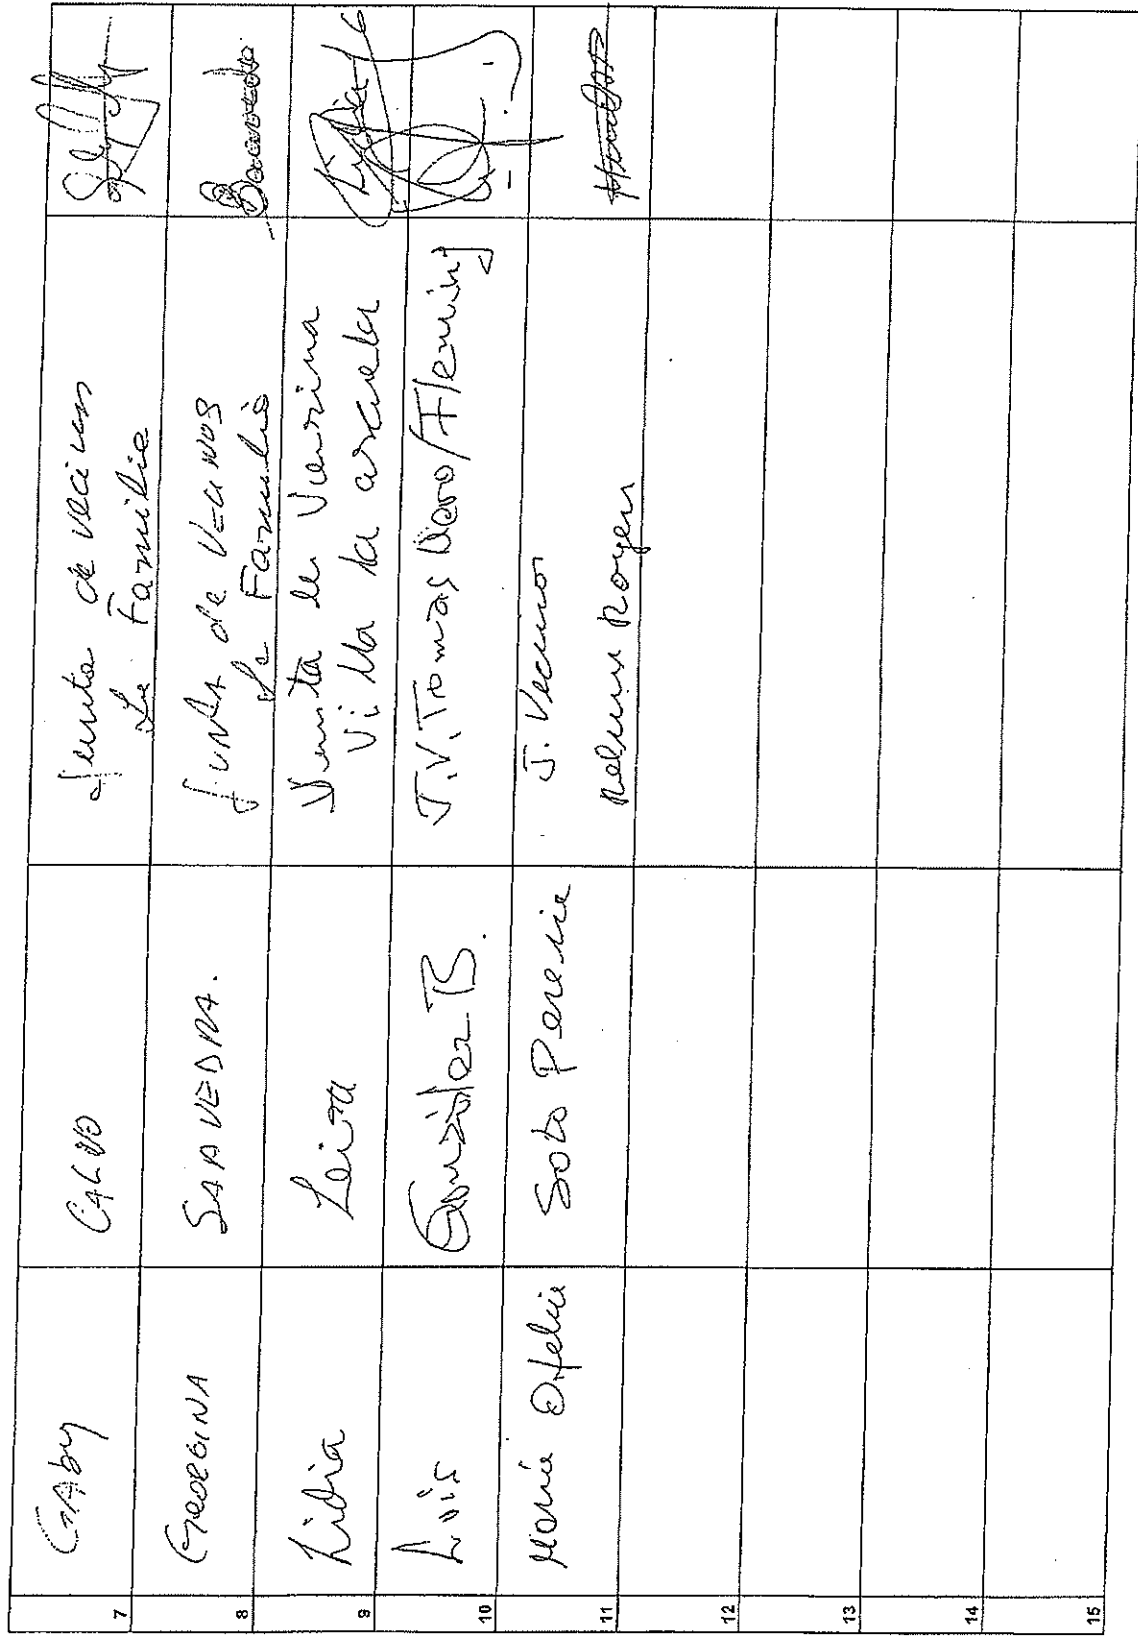 7 GAby CALVO Junta de vecinos
La Familia
8 GEORGINA SAAVEDRA. JUNTA de V=CINOS
La Familia
9 Lidia Leiva Junta de Vecina
Villa la arcadia Lidia
10 Luis González B. J.V. Tomas Moro/Fleming
11 María Ofelia Soto Pereira J. Vecinos
12
13
14
15